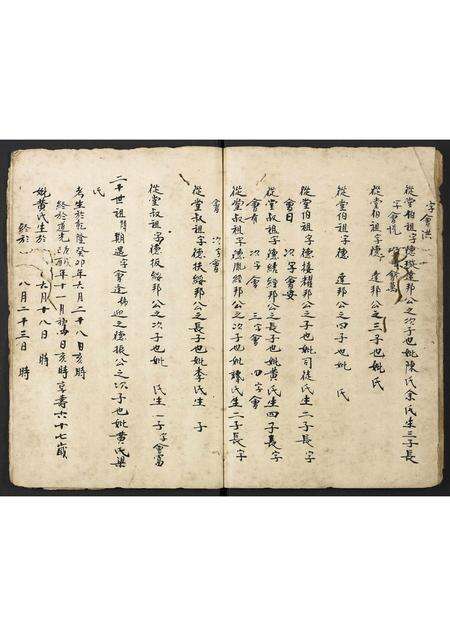 字會洪
從堂伯祖字德 達邦公之次子也妣陳氏余氏生三子長
字會悅
從堂伯祖字德 達邦公之三子也妣氏
從堂伯祖字德 達邦公之四子也妣 氏
從堂伯祖字德 邦公之子也妣司徒氏生二子長 字
會日 次字會安
從堂叔祖字德 經邦公之長子也妣黃氏生四子長字
會有 次字會 三字會 四字會
從堂叔祖字德 經邦公之次子也妣 氏生二子長字
會 次字會
從堂叔祖字德扶綏邦公之長子也妣李氏生 子
從堂叔祖字德振綏邦公之次子也妣 氏生一子字會富
二十世祖 期還字會達 迎之德振公之次子也妣黃氏梁
氏
考生於乾隆癸卯年六月二十八日亥時
終於道光 年十一月 日亥時享壽六十七歲
妣黃氏生於 六月十八日 時
終於 八月二十三日 時